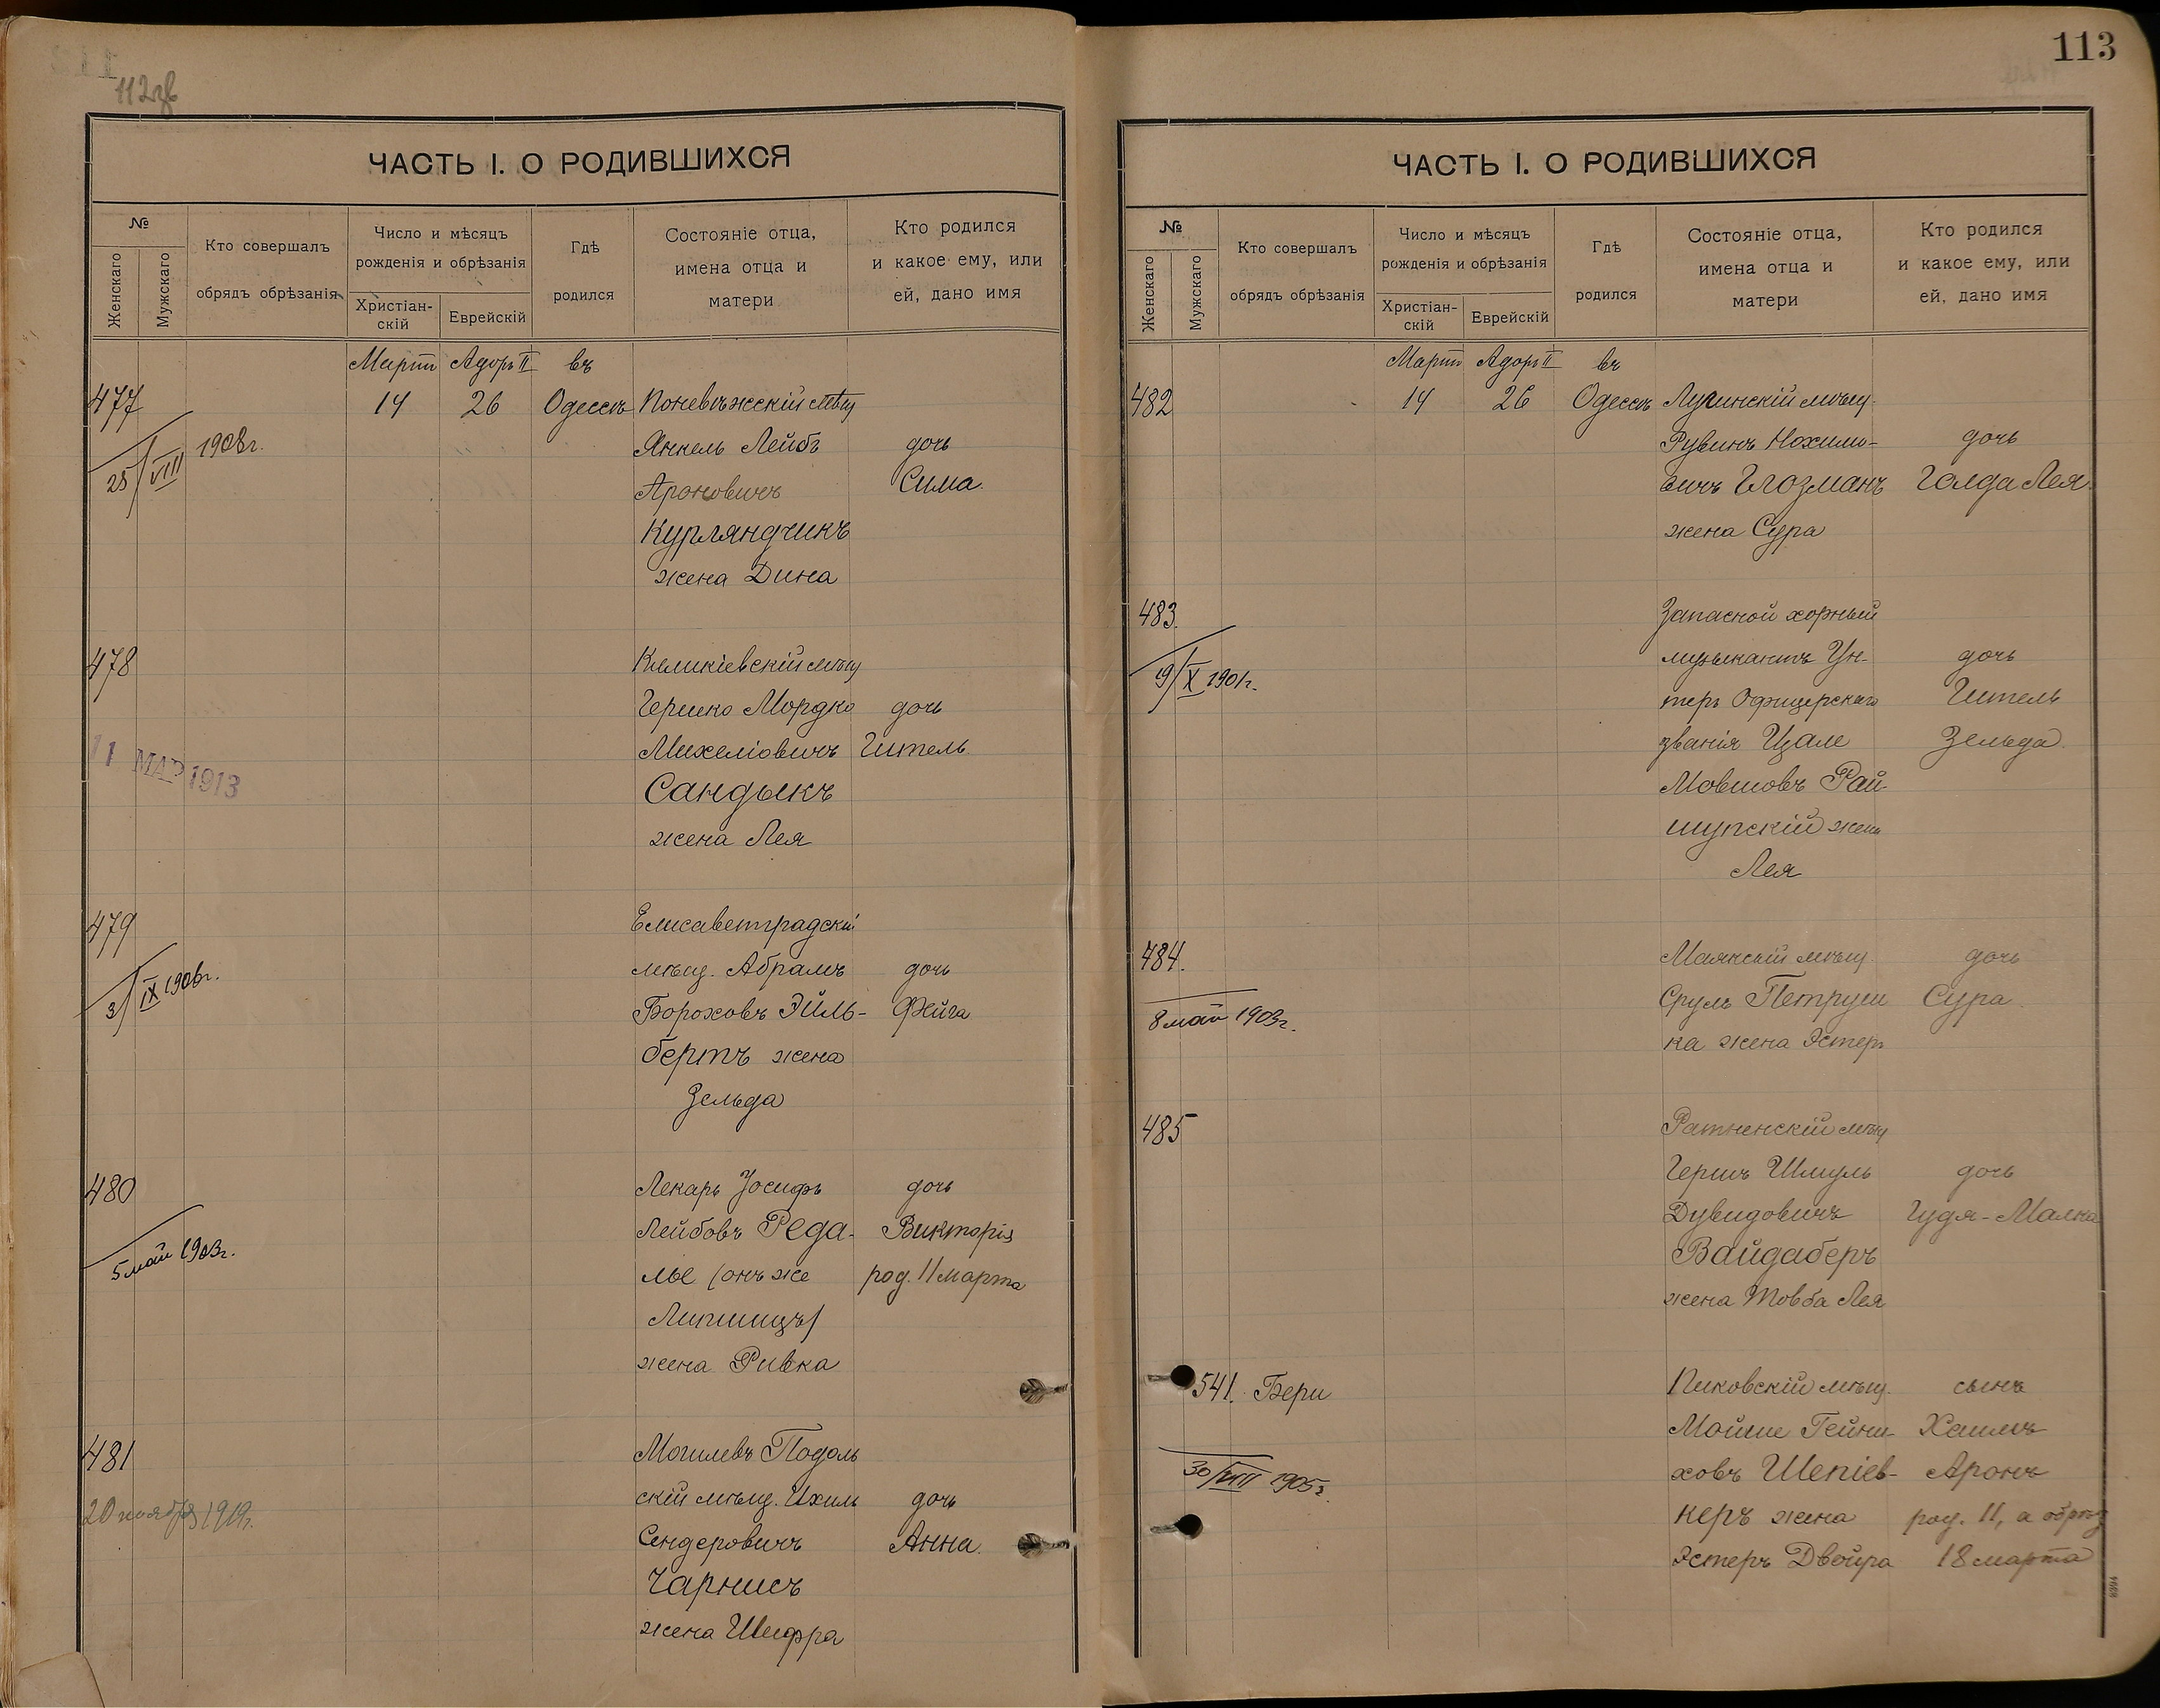 112зв
ЧАСТЬ I. О РОДИВШИХСЯ
№
Женскаго
Мужскаго
Кто совершалъ
обрядъ обрѣзанія
Число и мѣсяцъ
рожденія и обрѣзанія
Христіан-
скій
Еврейскій
Гдѣ
родился
Состояніе отца,
имена отца и
матери
Кто родился
и какое ему, или
ей, дано имя
Мартъ Адоръ II въ
477 14 26 Одессѣ Поневѣжскій мѣщ
25/VIII 1908г. Янкель Лейбъ дочь
Ароновичъ Сима.
Курляндчикъ
жена Дина
478 Киликіевскій мѣщ
Гершко Мордко дочь
Михеліовичъ Гитель.
11 МАР 1913
Сандыкъ
жена Лея
479 Елисаветградскій
мѣщ. Абрамъ дочь
3/IX 1906г. Бороховъ Эйль- Фейга
бертъ жена
Зельда
480 Лекарь Іосифъ дочь
Лейбовъ Реда- Викторія
5 май 1903г. лье (онъ же род. 11 марта
Липшицъ)
жена Ривка
481 Могилевъ Подоль
скій мѣщ. Ихиль дочь
20 ноября 1919г. Сендеровичъ Анна.
Чарнисъ
жена Шифра
113
ЧАСТЬ I. О РОДИВШИХСЯ
№
Женскаго
Мужскаго
Кто совершалъ
обрядъ обрѣзанія
Число и мѣсяцъ
рожденія и обрѣзанія
Христіан-
скій
Еврейскій
Гдѣ
родился
Состояніе отца,
имена отца и
матери
Кто родился
и какое ему, или
ей, дано имя
Мартъ Адоръ II въ
482 14 26 Одессѣ Лугинскій мѣщ.
Рувинъ Нохимо- дочь
вичъ Глозманъ Голда Лея.
жена Сура
483. Запасной хорный
19/X 1901г. музыкантъ Ун- дочь
теръ Офицерскаго Гитель
званія Цале Зельда.
Мовшовъ Рай-
шупскій жена
Лея
484. Маякскій мѣщ. дочь
Сруль Петруш Сура.
8 май 1903г. ка жена Эстеръ
485 Ратненскій мѣщ
Гершъ Шмуль дочь
Дувидовичъ Гудя-Малка
Вайдаберъ
жена Товба Лея
541. Бери Пиковскій мѣщ. сынъ
Мойше Гейни- Хаимъ
30/VIII 1905г. ховъ Шепіев- Аронъ
керъ жена род. 11, а обрѣз
Эстеръ Двойра 18 марта